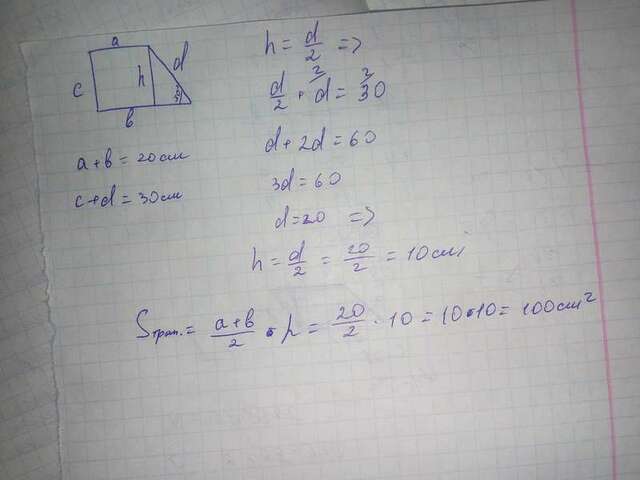 a
c
h
d
30°
b
a+b = 20см
c+d = 30см
h = d/2 =>
d/2 + d = 30
d + 2d = 60
3d = 60
d = 20 =>
h = d/2 = 20/2 = 10см
Sтрап. = (a+b)/2 • h = 20/2 · 10 = 10•10 = 100см²